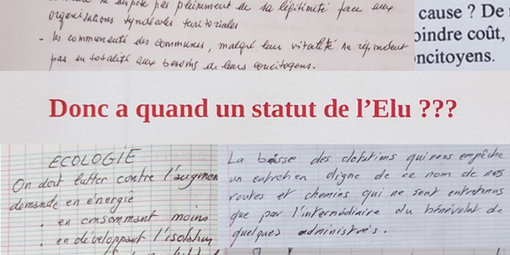 ne dispose pas pleinement de sa légitimité face aux
organisations syndicales territoriales
- les communauté des communes, malgré leur vitalité ne répondent
pas en totalité aux besoins de leurs concitoyens.
cause ? De
oindre coût,
ncitoyens.
Donc a quand un statut de l'Elu ???
ECOLOGIE
On doit lutter contre l'augmen
demande en énergie
• en consommant moins
• en développant l'isolation
La baisse des dotations qui nous empêche
un entretien digne de ce nom de nos
routes et chemins qui ne sont entretenus
que par l'intermédiaire du bénévolat de
quelques administrés.